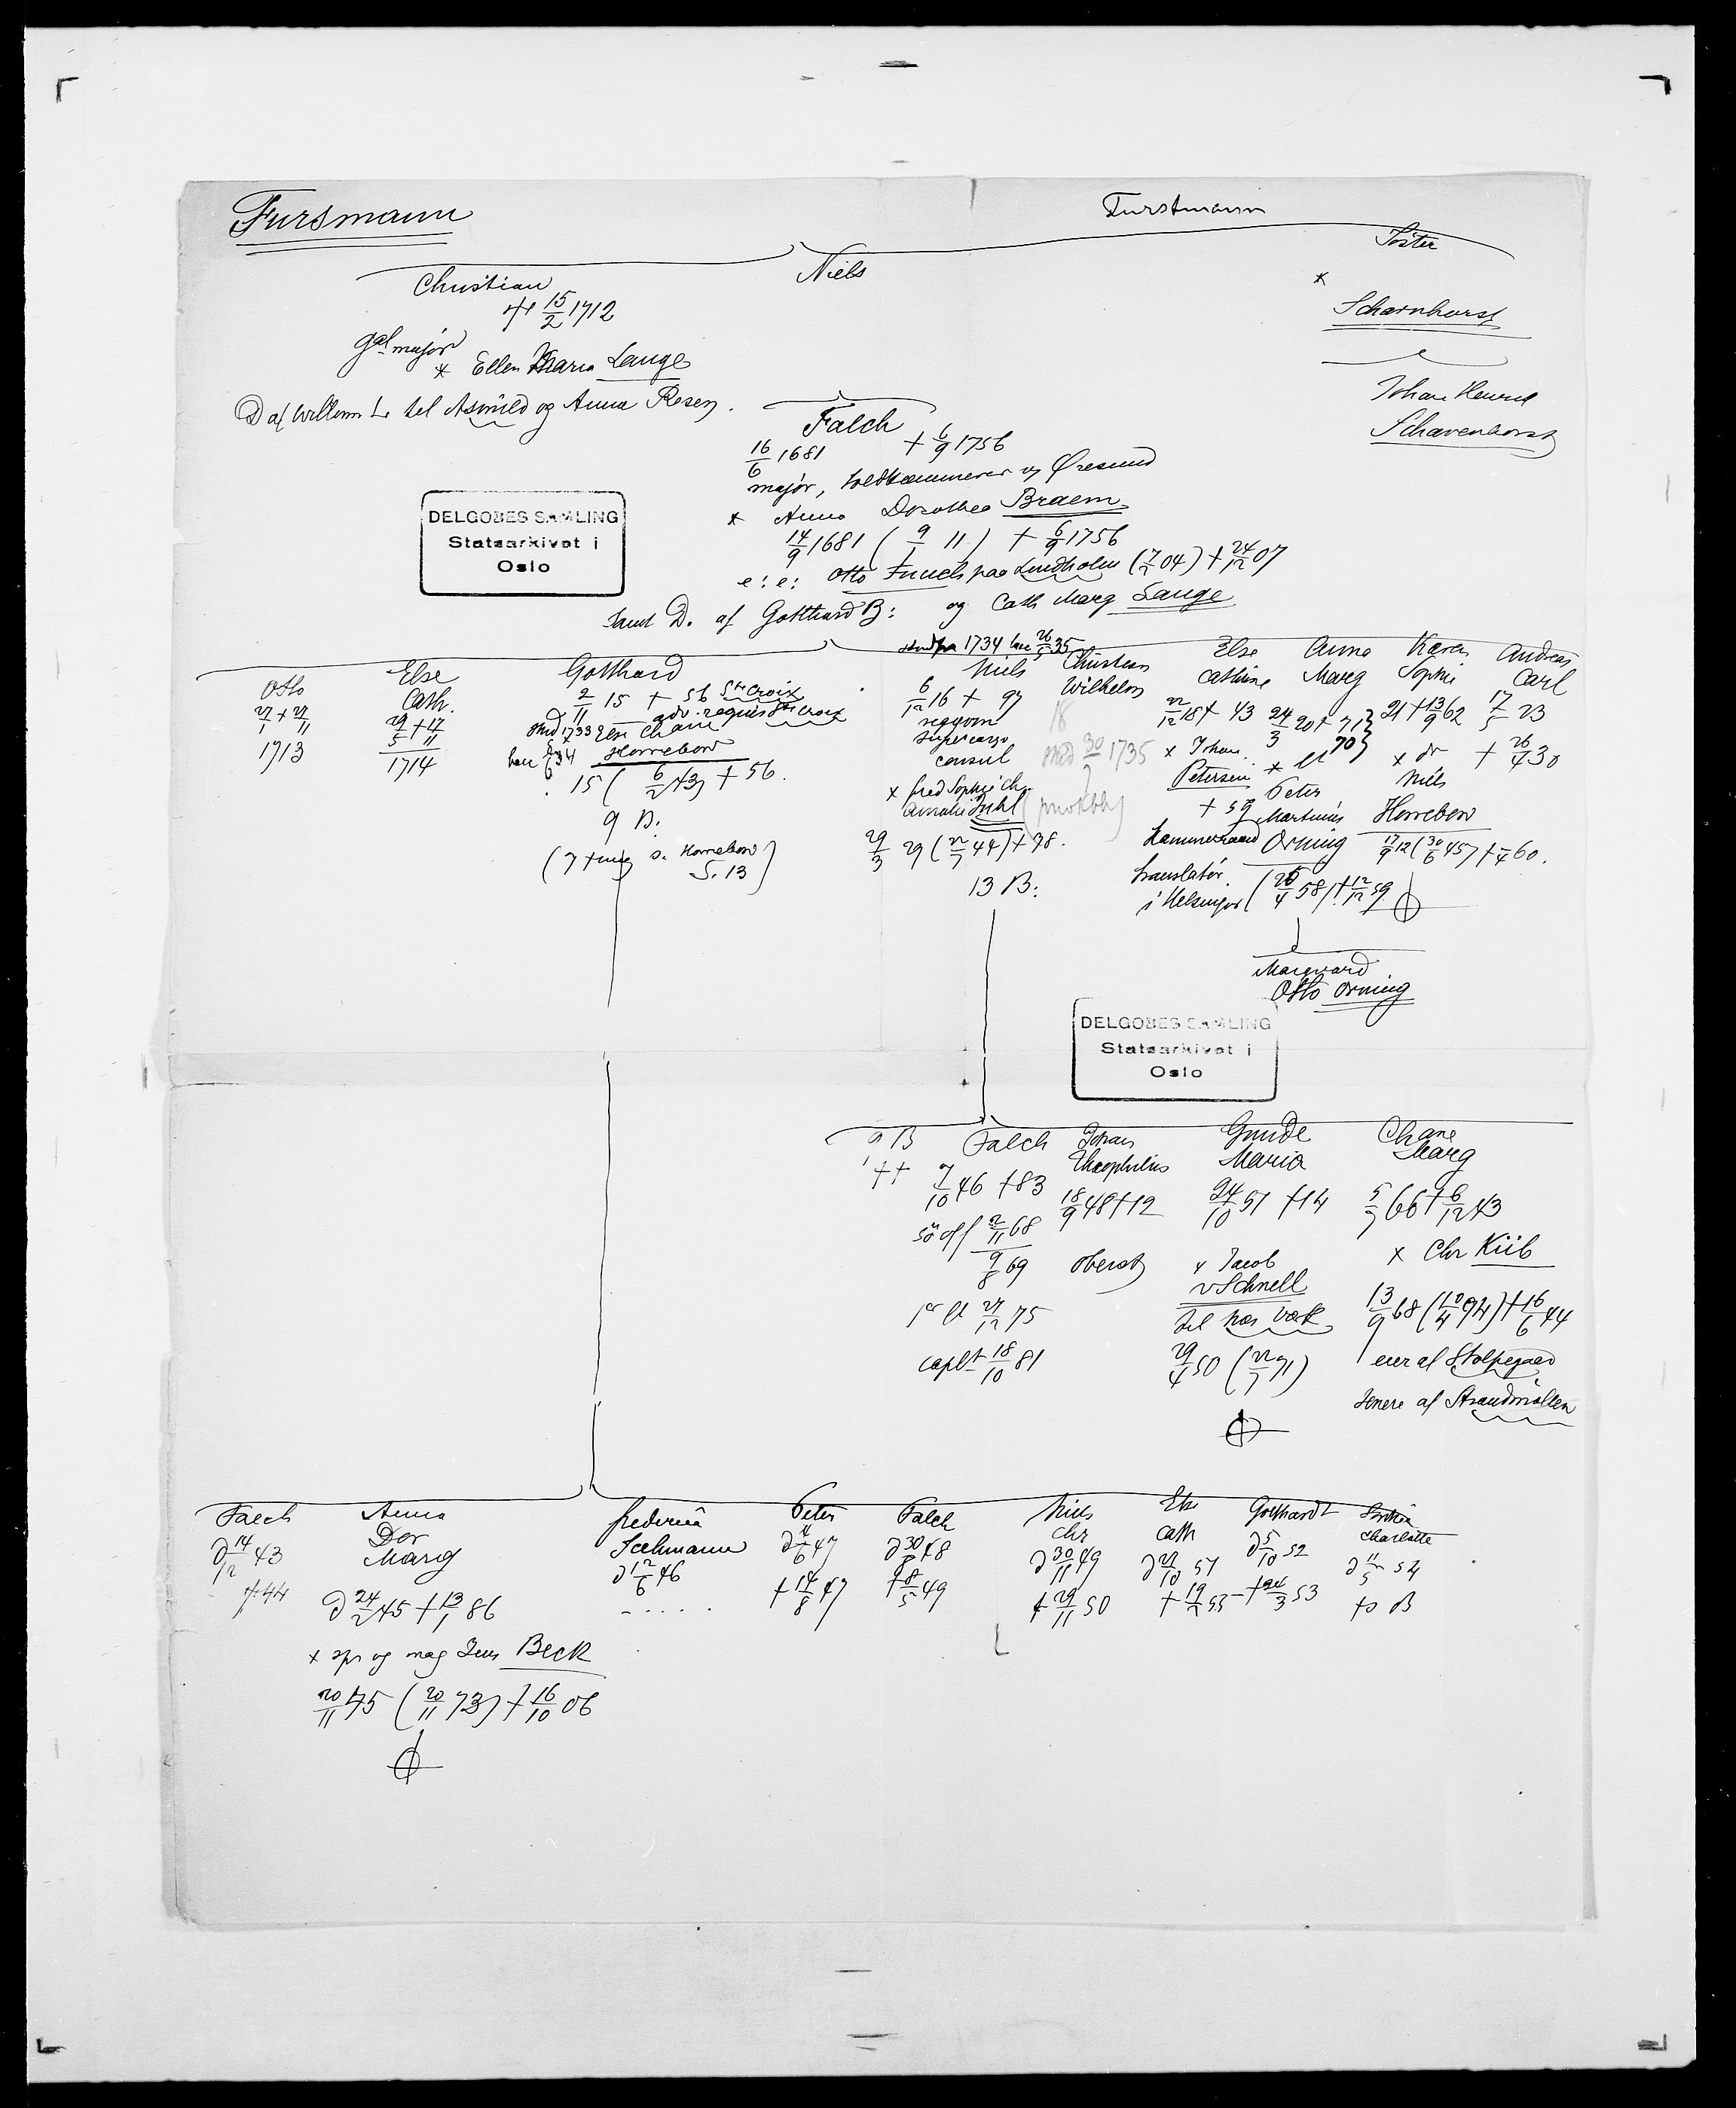 Fursmann
Furstmann
Christian
† 15/2 1712
galmajor
* Ellen Maria Lange
D af Willum L. til Asmild og Anna Resen.
Niels
Søster
*
Scharnhorst
Johan Henrik
Scharenhorst
Falch
16/6 1681 † 6/9 1756
major, toldkammerer v Øresund
* Anna Dorothea Braem
14/9 1681 (9/1 11) † 6/9 1756
e: e: Otto Funch paa Lindholm (7/2 04) † 24/12 07
samt D. af Gotthard B: og Cath Marg Lange
DELGOBES SAMLING
Statsarkivet i
Oslo
Otto
27/1 † 27/11
1713
Else
Cath.
29/5 † 17/11
1714
Gotthard
2/11 15 † 56 St Croix
adv. St Croix
stud 1733 Else Chane
Horrebow
15 (6/2 43) † 56.
9 B:
(7 † ung s. Horrebow
S. 13)
stud fra 1734 bac 26/5 35
Niels
6/12 16 † 97
supercargo
consul
* fred Sophie Ch.
Amalie Buhl
29/3 29 (22/7 44) † 98.
13 B:
Christian
Wilhelm
18
stud 30/7 1735
Else
Cathine
22/12 18 † 43
* Johan
Petersen
† 59
kammerraad
translatør
i Helsingør
Anna
Marg
24/3 20 † 71
70
Peter
Martinus
Orning
(26/4 58) † 12/12 59
Karen
Sophie
21 † 13/9 62
* dr
Niels
Horrebow
17/9 12 (30/6 45) † 4 60.
Andreas
Carl
17/5 23
† 26/4 30
Marqvard
Otto Orning
DELGOBES SAMLING
Statsarkivet i
Oslo
9 B
††
Falch
7/10 46 † 83
sö off 2/11 68
9/8 69
pr lt 27/12 75
capt 18/10 81
Johan
Theophilus
18/9 48 † 12
oberst
Gunde
Maria
24/10 51 † 14
* Jacob
v Schnell
til Næs Værk
29/4 50 (22/7 71)
Chane
Marg
5/7 66 † 6/12 43
* Chr Kiib
13/9 68 (10/4 94) † 16/6 44
eier af Stolpegaard
senere af Strandmøllen
Falch
d 14/12 43
† 44
Anna
Dor
Marg
d 24/2 45 † 13/1 86
* spr og mag Jens Beck
20/11 45 (20/11 73) † 16/10 06
Frederica
Seehmann
d 12/6 46
- . . . . .
Peter
d 4/6 47
† 14/8 47
Falch
d 30/8 48
† 8/5 49
Niels
chr
d 30/11 49
† 29/11 50
Else
cath
d 27/10 51
† 19/2 53
Gotthardt
d 5/10 52
† 24/3 53
Charlotte
d 11/5 54